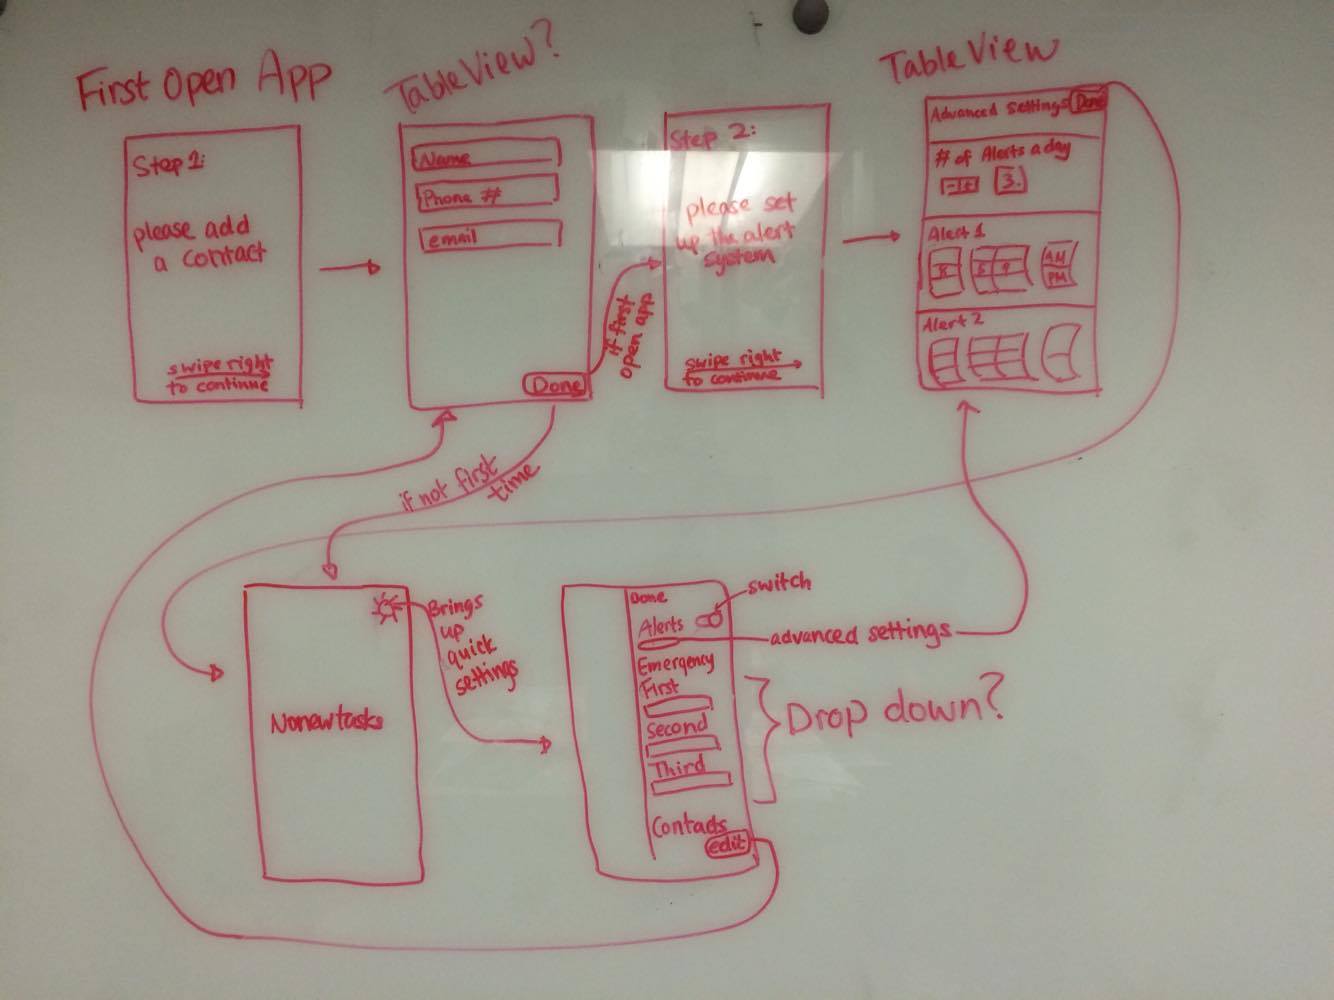 First Open App
Step 1:
please add
a contact
swipe right
to continue
TableView?
Name
Phone #
email
Done
if first
open app
if not first
time
Step 2:
please set
up the alert
system
swipe right
to continue
TableView
Advanced settings
Done
# of Alerts a day
-|+
3.
Alert 1
8
5 9
AM
PM
Alert 2
No new tasks
Brings
up
quick
settings
Done
switch
Alerts
advanced settings
Emergency
First
Second
Third
Drop down?
Contacts
edit